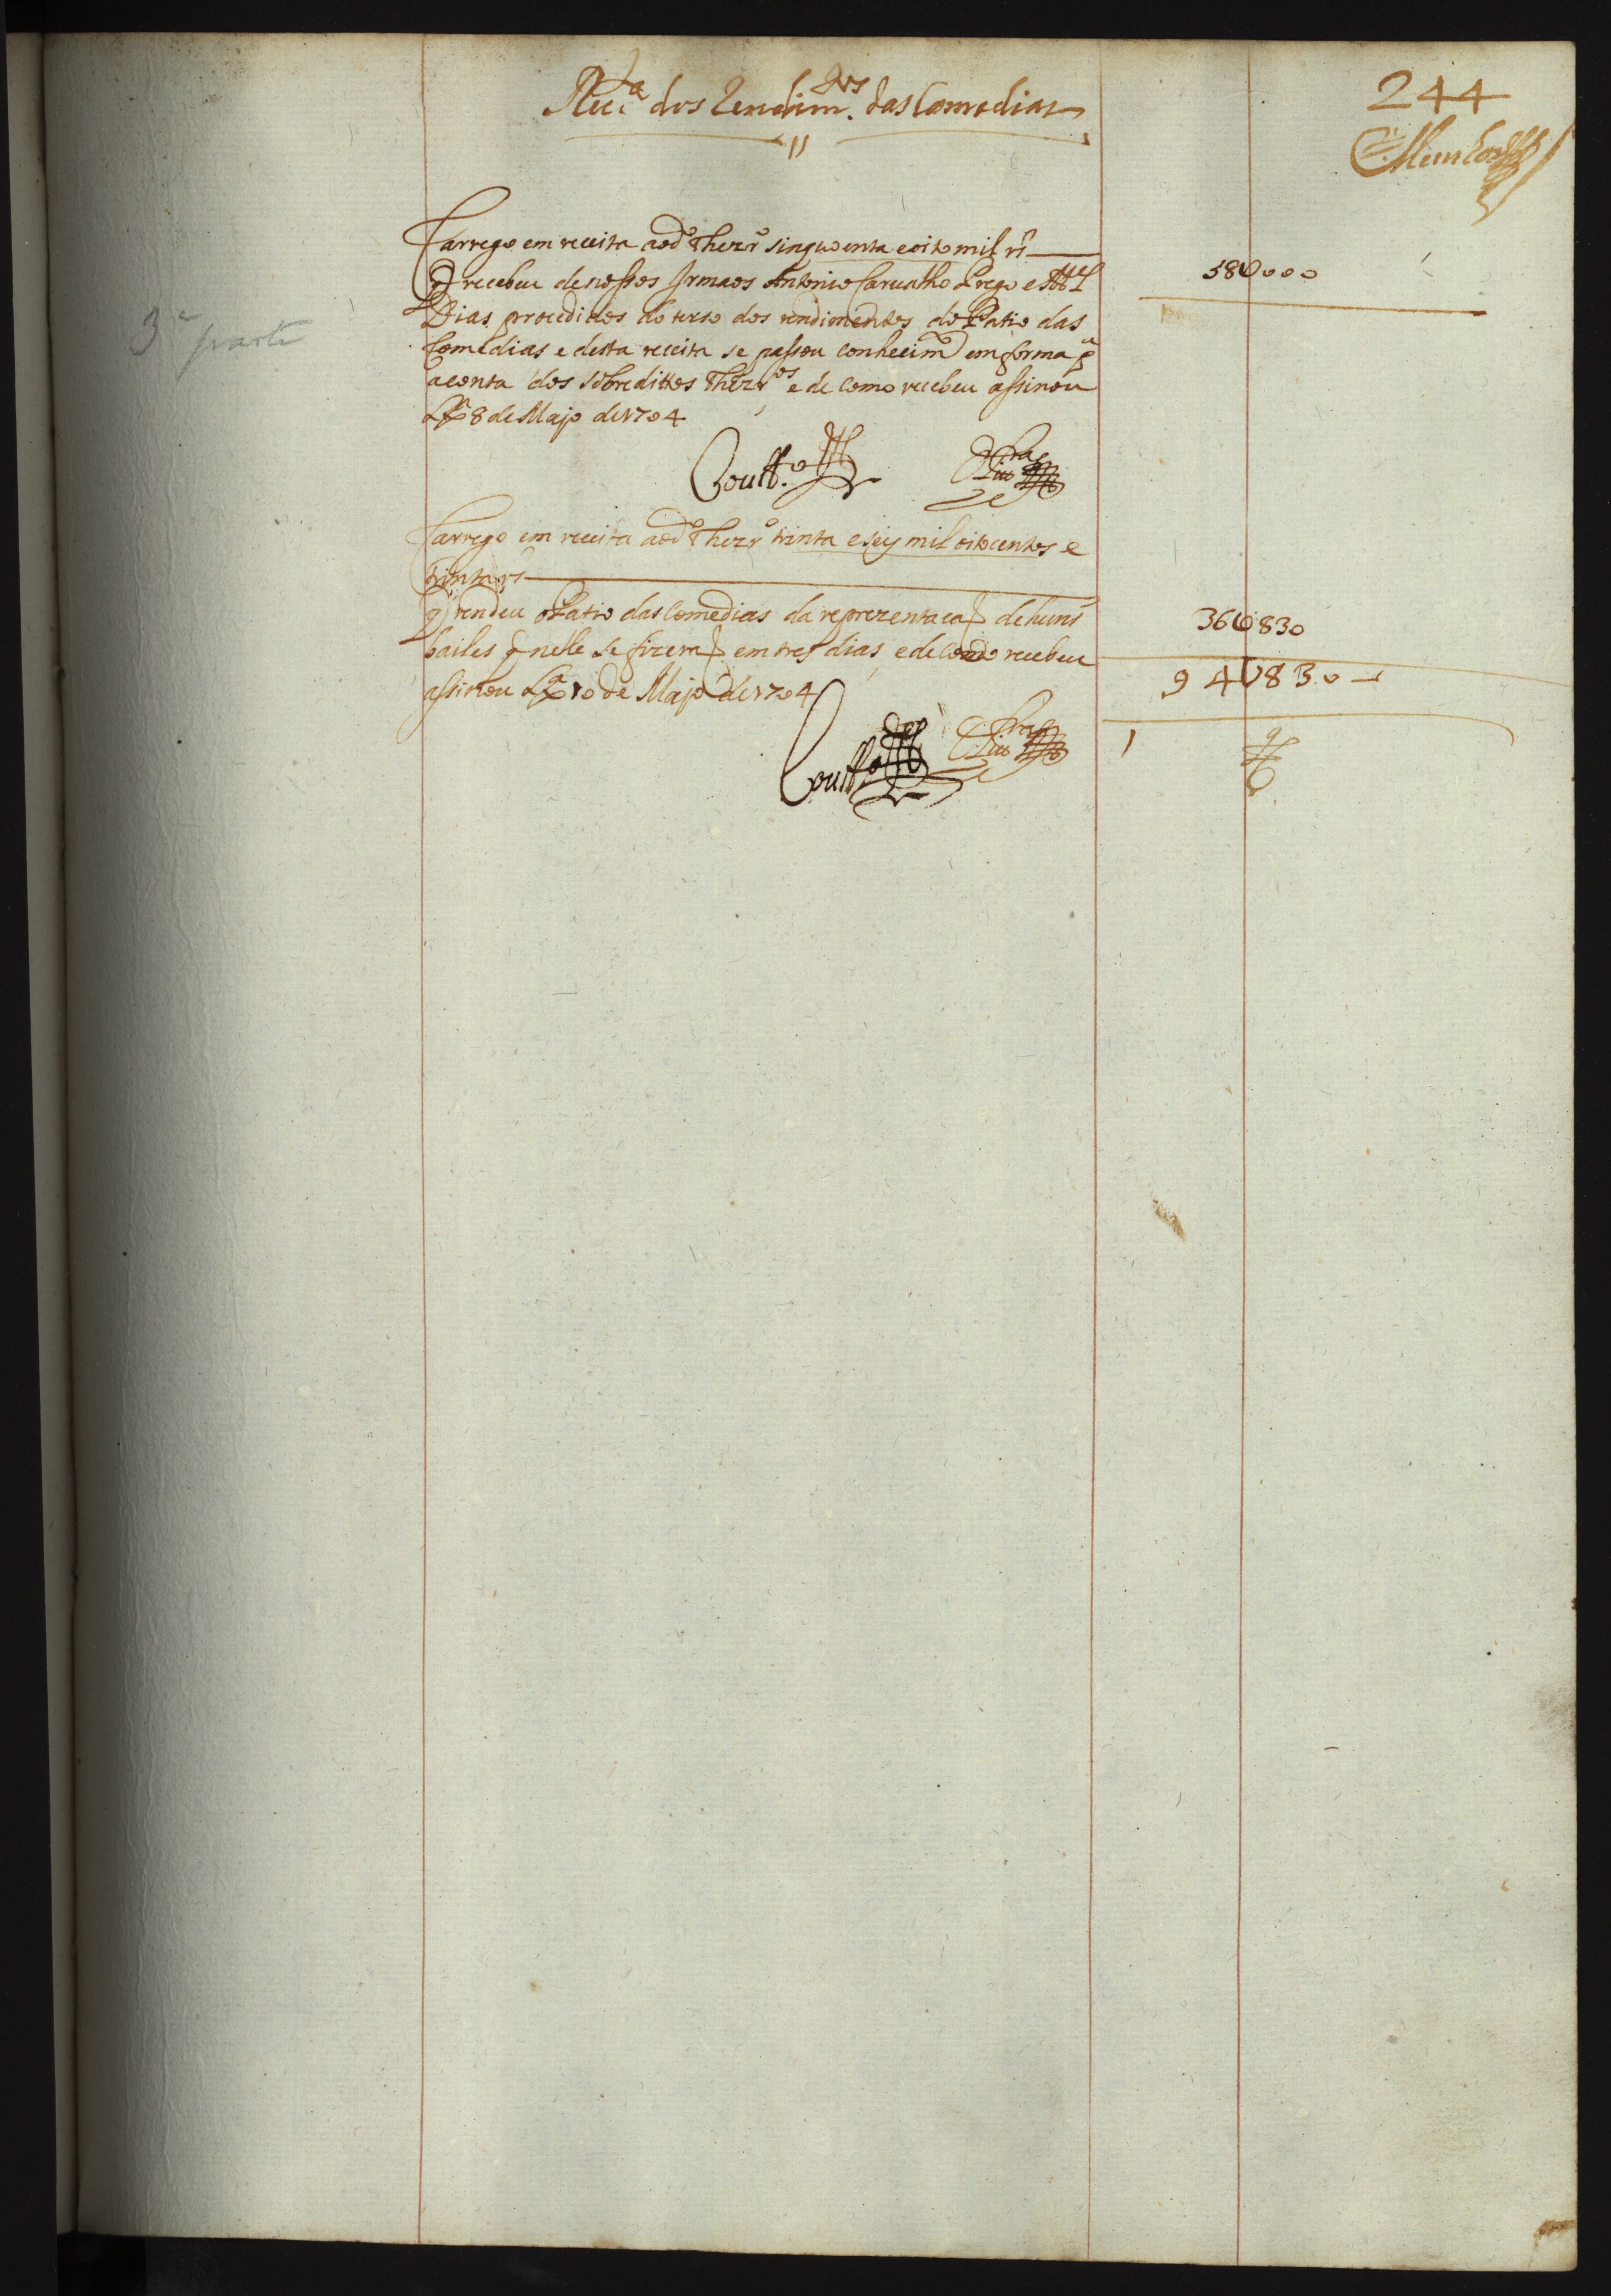 244
Rec.ta dos Rendim.tos das Comedias
Carrego em receita ao d.o Thezr.o sinquoenta e oito mil rs
58U000
q recebeu de nossos Irmaos Antonio Carualho Prego e M.el
Dias procedidos do terso dos rendimentos do Patio das
3.a parte
Comedias e desta receita se passou conhecim.to em forma p.a
a conta dos sobreditos Thezr.os e de como recebeu assinou
Lx.a 8 de Majo de 1704
Coutto
Carrego em receita ao d.o Thezr.o trinta e sey mil oitocentos e
trinta rs
q rendeu o Patio das Comedias da reprezentacaõ de huns
36U830
bailes q nelle se fizeraõ em tres dias, e de como recebeu
94U830
assinou Lx.a 10 de Majo de 1704
Coutto